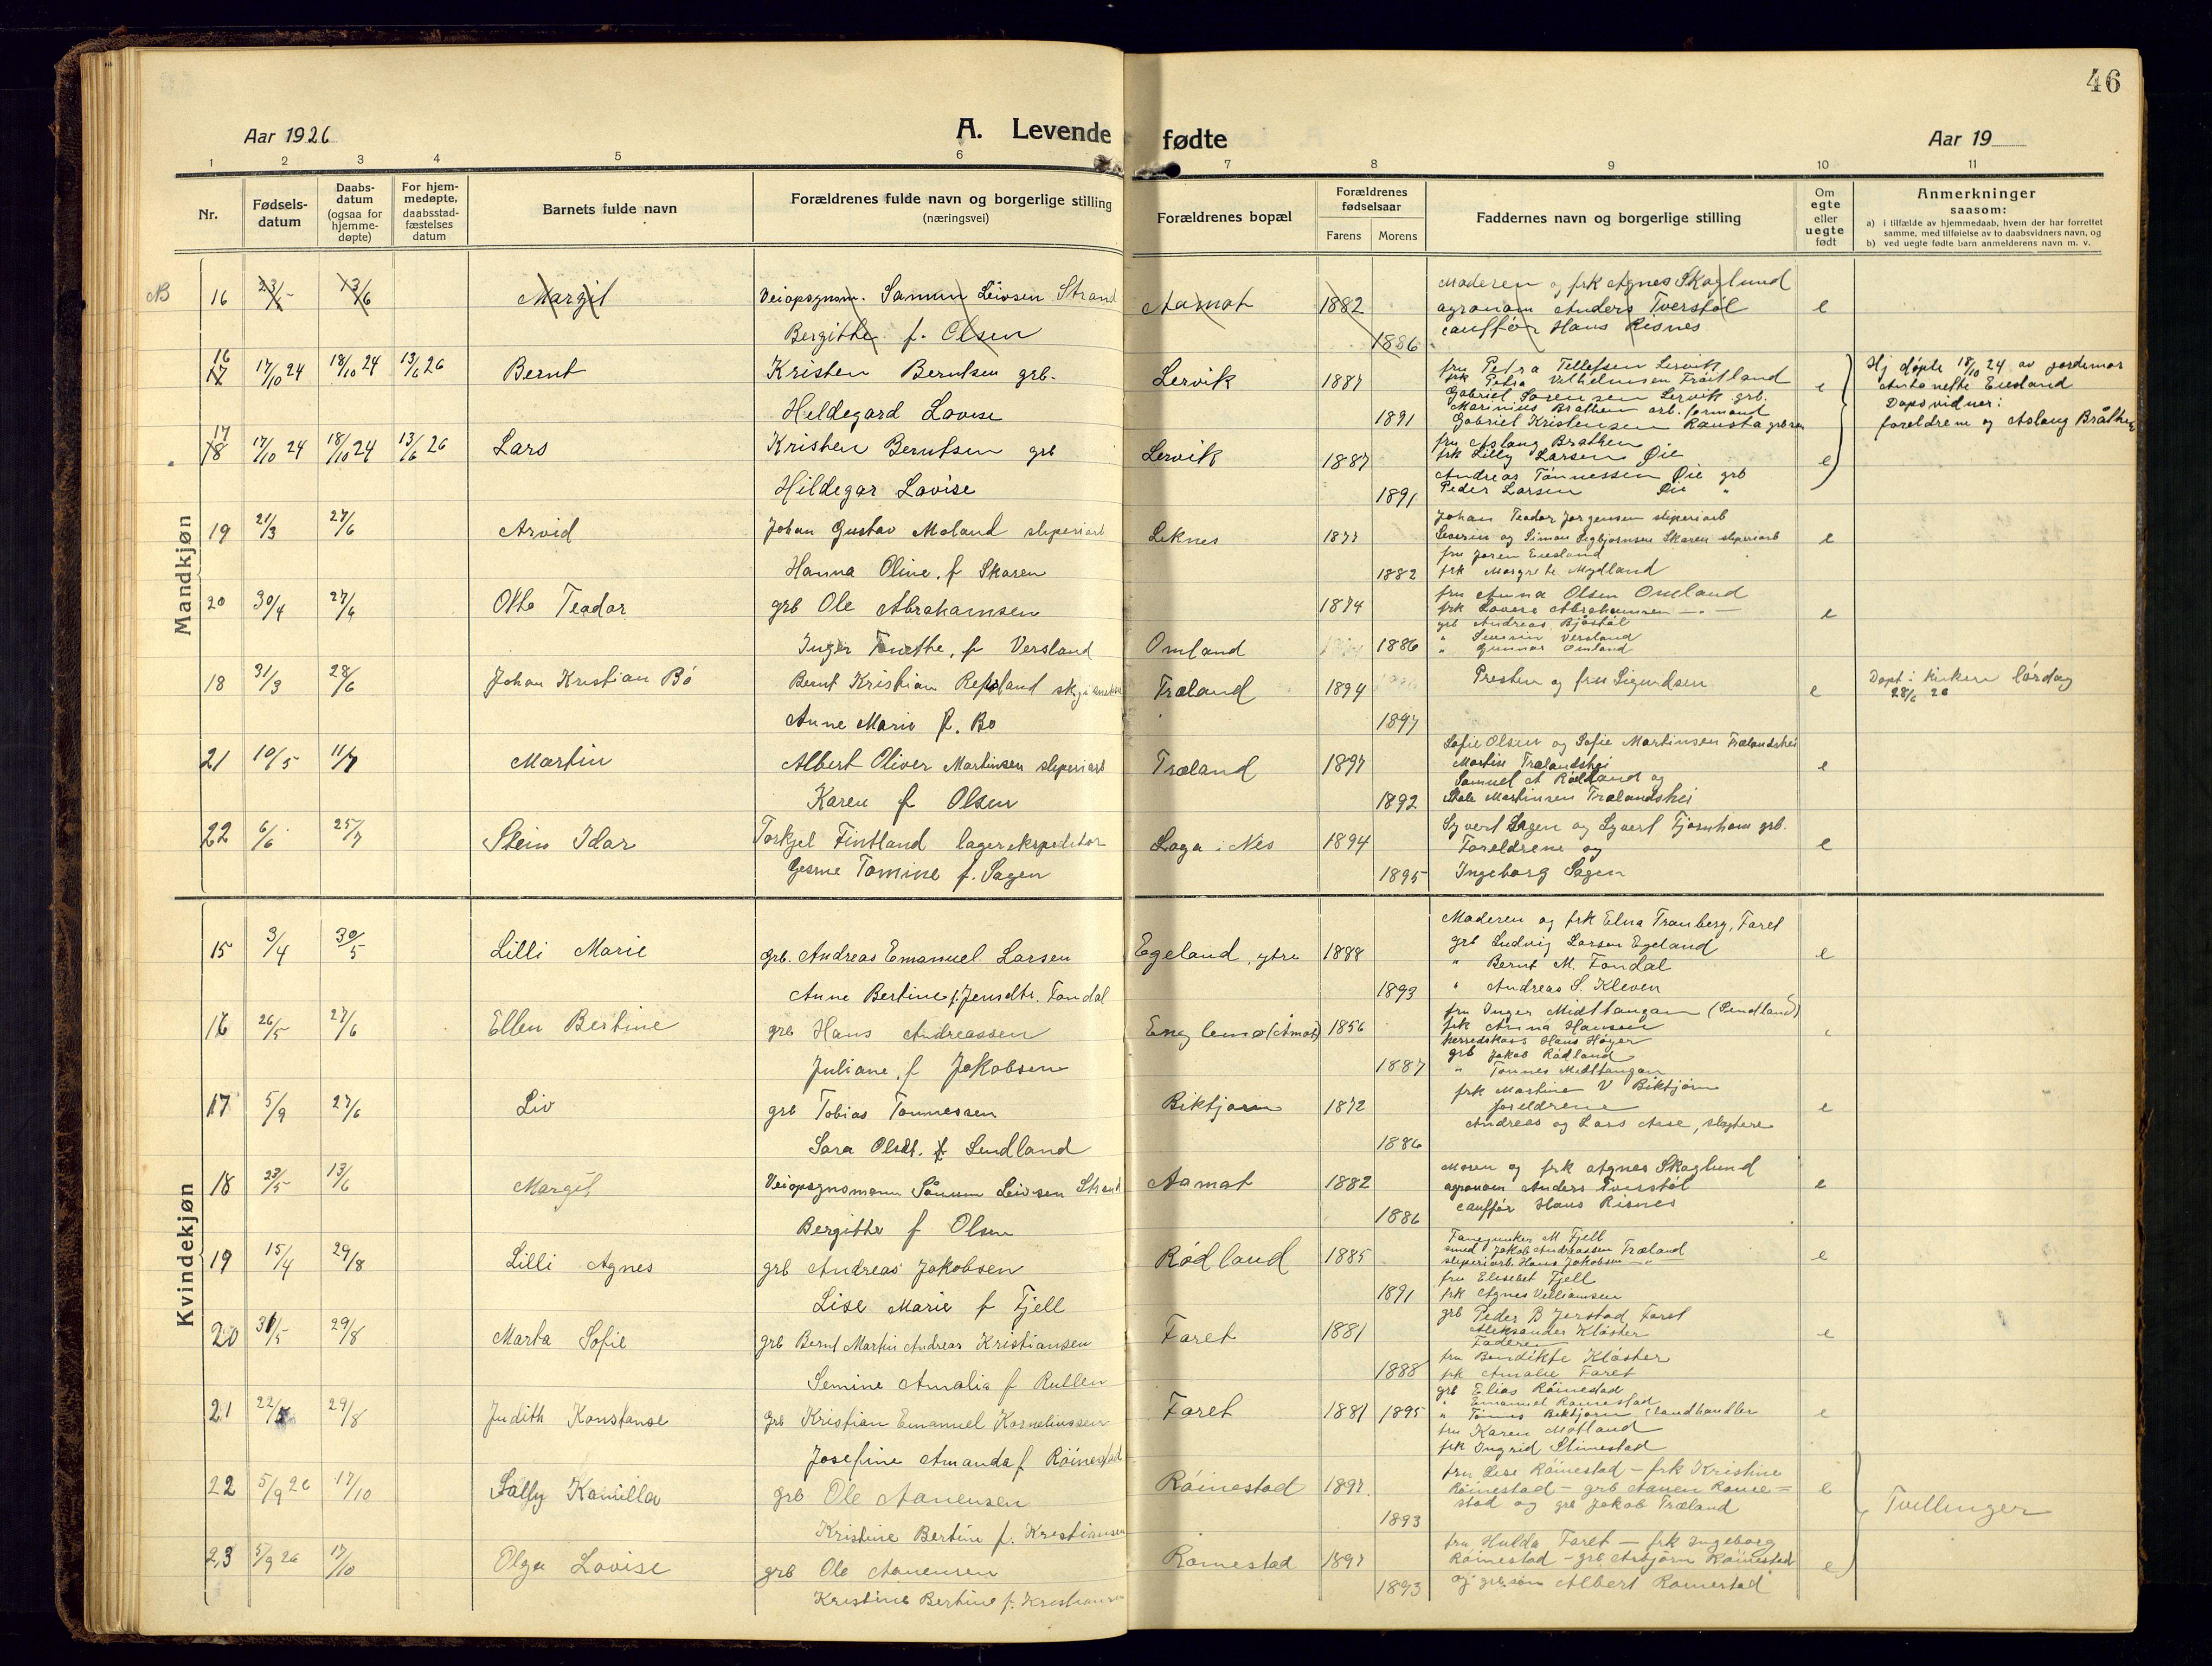 46
Aar 1926
A. Levende fødte
Aar 19
1 2 3 4 5 6 7 8 9 10 11
Nr.
Fødsels-
datum
Daabs-
datum
(ogsaa for
hjemme-
døpte)
For hjem-
medøpte,
daabsstad-
fæstelses
datum
Barnets fulde navn
Forældrenes fulde navn og borgerlige stilling
(næringsvei)
Forældrenes bopæl
Forældrenes
fødselsaar
Farens Morens
Faddernes navn og borgerlige stilling
Om
egte
eller
uegte
født
Anmerkninger
saasom:
a) i tilfælde av hjemmedaab, hvem der har forrettet
samme, med tilføielse av to daabsvidners navn, og
b) ved uegte fødte barn anmelderens navn m. v.
Mandkjøn
NB 16 23/5 13/6 Margit Veiopsynsm. Sanum Leivsen Strand Aamot 1882 e
Bergitthe f. Olsen 1886
Moderen og frk Agnes Skaglund
agronom Anders Tverstøl
cauffør Hans Risnes
16 17 17/10 24 18/10 24 13/6 26 Bernt Kristen Berntsen grb. Lervik 1887 e
Hildegard Lovise 1891
fru Petra Tellefsen Lervik
frk Petra Vilhelmsen Frøitland
Gabriel Sørensen Lervik grb.
Marinius Bråthen arb. formand
Gabriel Kristensen Rausta
Hj døpte 18/10 24 av jordemor
Antonette Eiesland
Dåpsvidner:
foreldrene og Aslaug Bråthen
17 18 17/10 24 18/10 24 13/6 26 Lars Kristen Berntsen grb Lervik 1887 e
Hildegar Lovise 1891
fru Aslaug Brathen
frk Lilly Larsen Øie
Andreas Tønnessen Øie grb
Peder Larsen Øie "
19 21/3 27/6 Arvid Johan Gustav Moland sliperiarb Leknes 1877 e
Hanna Oline, f Skaren 1882
Johan Teodor Jørgensen sliperiarb
Severin og Simon Sigbjørnsen Skaren sliperiarb
fru Joren Eiesland
frk Margrete Mydland
20 30/4 27/6 Otto Teodor grb Ole Abrahamsen 1874 e
Inger Tonethe, f Versland Omland 1886
fru Anna Olsen Omland
frk Lovise Abrahamsen - " -
grb Andreas Bjøstøl
" Severin Versland
" Gunnar Omland
18 31/3 28/6 Johan Kristian Bö Bernt Kristian Repsland Træland 1894 e
Anne Marie f. Bö 1897
Presten og fru Sigundsen
Døpt i kirken lørdag
28/6 26
21 10/5 11/7 Martin Albert Oliver Martinsen sliperiarb Træland 1897 e
Karen f Olsen 1892
Sofie Olsen og Sofie Martinsen Trælandshei
Martin Trælandshei
Samuel A Rødland og
Ståle Martinsen Trælandshei
22 6/6 25/7 Stein Idar Torkjel Fintland lagerekspeditør Loga i Nes 1894 e
Gesine Tomine f. Sagen 1895
Syvert Sagen og Syvert Fjørnham grb.
Foreldrene og
Ingeborg Sagen
Kvindekjøn
15 3/4 30/5 Lilli Marie grb. Andreas Emanuel Larsen Egeland, ytre 1888 e
Anne Bertine f. Jensdtr. Fondal 1893
Moderen og frk Elna Tranberg, Faret
grb Ludvig Larsen Egeland
" Bernt M. Fondal
" Andreas S. Kleven
16 26/5 27/6 Ellen Bertine grb Hans Andreassen Englemo (Åmot) 1856
Juliane, f Jakobsen 1887
fru Inger Midttangan (Pendland)
frk Anna Hansen
herredskass Hans Høyer
grb Jakob Rødland
" Tønnes Midttangan
17 5/9 27/6 Liv grb Tobias Tønnessen Biktjørn 1872 e
Sara Olsdt. f Lendland 1886
frk Martine V Biktjørn
foreldrene
Andreas og Lars Aase, slagtere
18 23/5 13/6 Margit Veiopsynsmann Sånum Leivsen Strand Aamot 1882 e
Bergitthe f Olsen 1886
Moren og frk Agnes Skaglund
agronom Anders Tverstøl
cauffør Hans Risnes
19 15/4 29/8 Lilli Agnes grb Andreas Jakobsen Rødland 1885 e
Lise Marie f Fjell 1891
Fanejunker M Fjell
smed Jakob Andreassen Træland
sliperiarb. Hans Jakobsen - " -
fru Elisebet Fjell
frk Agnes Villiamsen
20 31/5 29/8 Marta Sofie grb Bernt Martin Andreas Kristiansen Faret 1881 e
Semine Amalia f Rullen 1888
grb Peder B Jerstad, Faret
Aleksander Kløster
Faderen
fru Bendikte Kløster
frk Amalie Faret
21 22/5 29/8 Judith Konstanse grb Kristian Emanuel Korneliussen Faret 1881 1895 e
Josefine Amanda f Röinestad
grb Elias Röinestad
" Emanuel Röinestad
" Tønnes Biktjørn landhandler
fru Karen Motland
frk Ingrid Stimestad
22 5/9 26 17/10 Sally Kamilla grb Ole Aanensen Röinestad 1897 e
Kristine Bertine f. Kristiansen 1893
fru Lise Röinestad - frk Kristine
Röinestad - grb Aanen Röine=
stad og grb Jakob Træland
Tvillinger
23 5/9 26 17/10 Olga Lovise grb Ole Aanensen Röinestad 1897 e
Kristine Bertine f. Kristiansen 1893
fru Hulda Faret - frk Ingeborg
Röinestad - grb Asbjørn Röinestad
og grb.søn Albert Röinestad